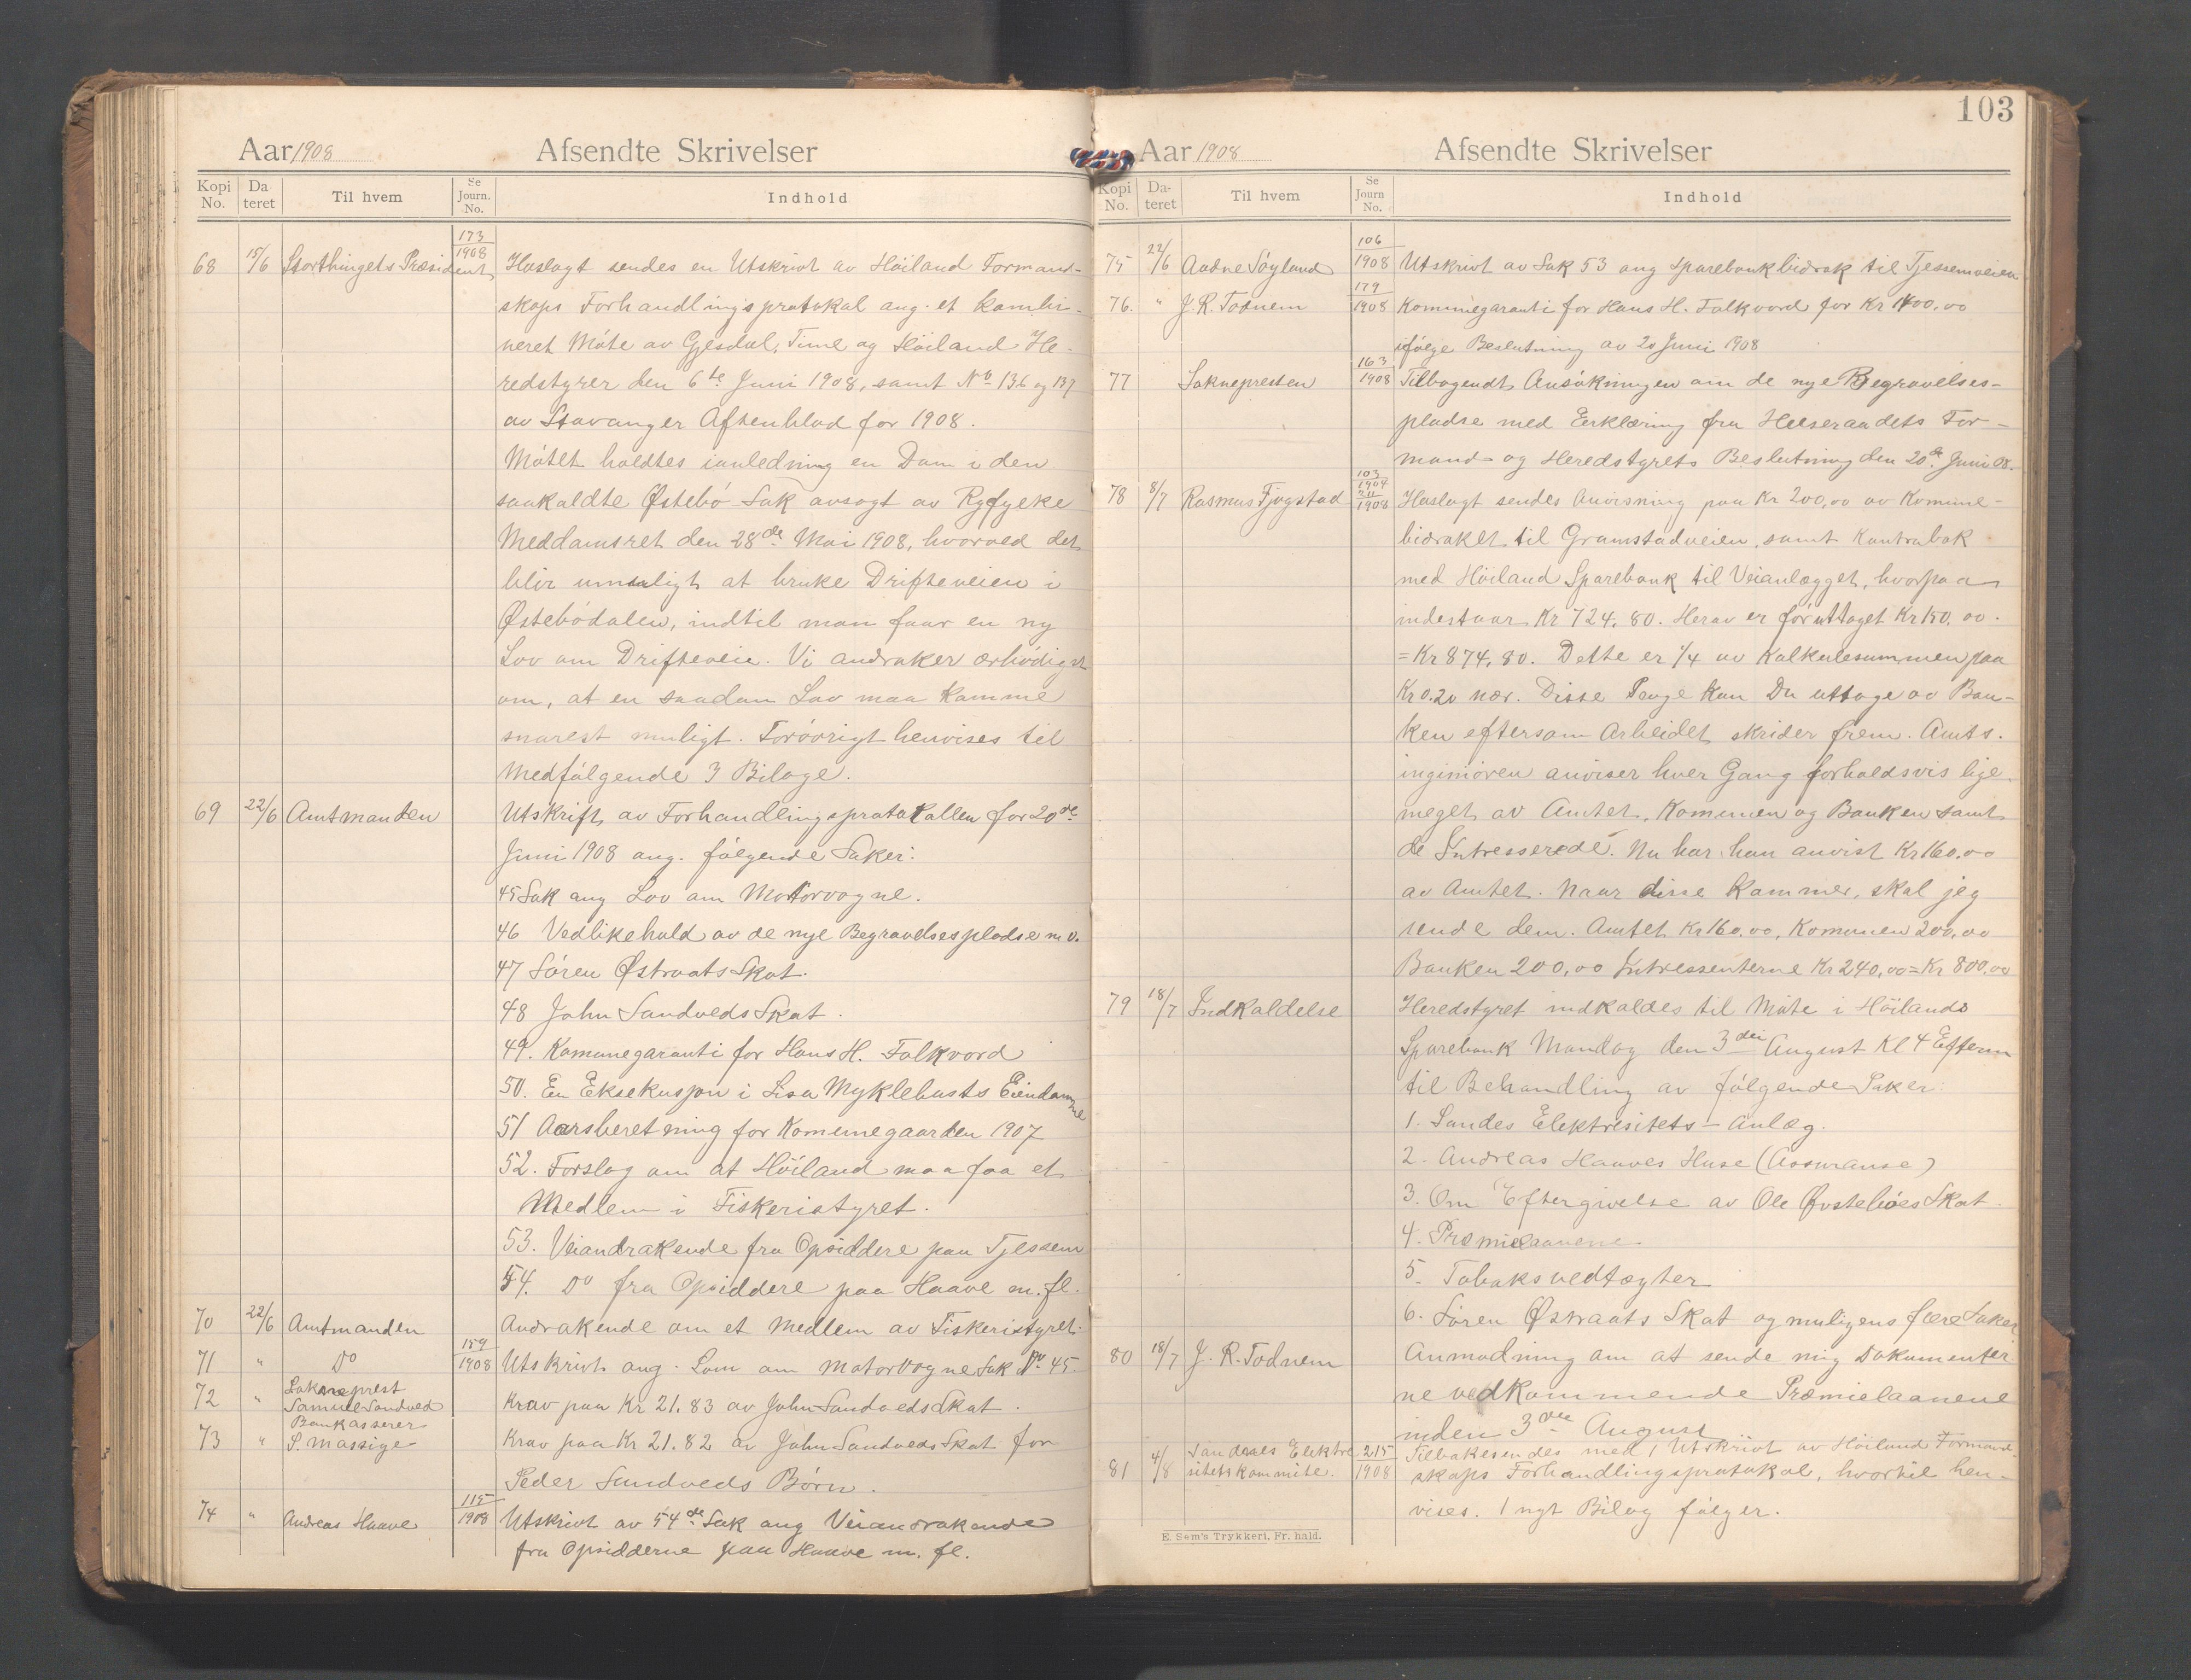 Aar 1908 Afsendte Skrivelser
Kopi No. Da teret Til hvem Se Journ. No. Indhold
68 15/6 Storthingets Præsident 173/1908 Haslagt sendes en Utskrivt av Höiland Formand-
skaps Forhandlingsprotokal ang. et kombi-
neret Möte av Gjesdal, Time og Höiland He-
redstyrer den 6te Juni 1908, samt No 136 og 137
av Stavanger Aftenblad for 1908.
Mötet holdtes ianledning en Dom i den
saakaldte Østebö-Sak avsagt av Ryfylke
Meddomsret den 28de Mai 1908, hvorved det
blir umuligt at bruke Drifteveien i
Østebödalen, indtil man faar en ny
Lov om Drifteveie. Vi andraker ærbödigst
om, at en saadan Lov maa komme
snarest muligt. Forövrigt henvises til
Medfölgende 3 Bilage.
69 22/6 Amtmanden Utskrift av Forhandlingsprotokallen for 20de
Juni 1908 ang. fölgende Saker:
45 Sak ang Lov om Motorvogne.
46 Vedlikehold av de nye Begravelsesplodse m v.
47 Sören Østraats Skat.
48 John Sandveds Skat.
49. Komunegaranti for Hans H. Folkvord
50. En Eksekusjon i Lisa Myklebusts Eiendomme
51 Aarsberetning for Komunegaarden 1907
52. Forslag om at Höiland maa faa et
Medlem i Fiskeristyret.
53. Veiandrakende fra Opsiddere paa Tjessem
54. Do fra Opsiddere paa Haave m. fl.
70 22/6 Amtmanden Andrakende om et Medlem av Fiskeristyret.
71 " Do 159/1908 Utskrivt ang. Lom om Motorvogne Sak No 45.
72 " Soknepresst Samuel Sandved Krav paa Kr 21.83 av John Sandveds Skat.
73 " Bankasserer S. Massige Krav paa Kr 21.82 av John Sandveds Skat for
Peder Sandveds Börn.
74 " Andreas Haave 115/1908 Utskrivt av 54de Sak ang Veiandrakende
fra Opsidderne paa Haave m. fl.
103
Aar 1908 Afsendte Skrivelser
Kopi No. Da-teret Til hvem Se Journ No. Indhold
75 22/6 Aadne Söyland 106/1908 Utskrivt av Sak 53 ang Sparebankbidrak til Tjessemveien
76. " J. R. Todnem 179/1908 Kommugaranti for Hans H. Folkvord for Kr 1400.00
ifölge Beslutning av 20 Juni 1908
77 Soknepresten 163/1908 Tilbagendt Ansökningen om de nye Begravelses-
pladse med Erklæring fra Helseraadets For-
mand og Heredstyrets Beslutning den 20de Juni 08.
78 8/7 Rasmus Fjogstad 103/1904 211/1908 Haslagt sendes Anvisning paa Kr 200,00 av Komune-
bidraket til Gramstadveien, samt Kontrabok
med Höiland Sparebank til Veianlægget, hvorpaa
indestaar Kr 724.80. Herav er för uttaget Kr 150.00.
= Kr 874,80. Dette er 1/4 av Kalkulesummen paa
Kr 0.20 nær. Disse Penge kan Du uttage av Ban-
ken eftersom Arbeidet skrider frem. Amts.
ingeniören anviser hver Gang forholdsvis lige-
meget av Amtet, Komunen og Banken samt
de Intresserede. Nu har han anvist Kr 160.00
av Amtet. Naar disse Kommer, skal jeg
sende dem. Amtet Kr 160.00, Komunen 200,00
Banken 200,00 Intressenterne Kr 240,00 = Kr 800.00
79 18/7 Indkaldelse Heredstyret indkaldes til Möte i Höilands
Sparebank Mandag den 3die August Kl 4 Efterm
til Behandling av fölgende Saker:
1. Sandes Elektrisitets-Anlæg.
2. Andreas Haaves Huse (Assuranse)
3. Om Eftergivelse av Ole Øvsteböes Skat.
4. Præmielaanene.
5. Tobaksvedtægter
6. Sören Østraats Skat og muligens flere Saker.
80 18/7 J. R. Todnem Anmodning om at sende mig Dokumenter
ne vedkommende Præmielaanene
inden 3die August
81 4/8 Sandnes Elektri sitetskommite. 215/1908 Tilbakesendes med 1 Utskrivt av Höiland Formand-
skaps Forhandlingsprotokol, hvortil hen-
vises. 1 nyt Bilag fölger.
E. Sem's Trykkeri, Fr. hald.